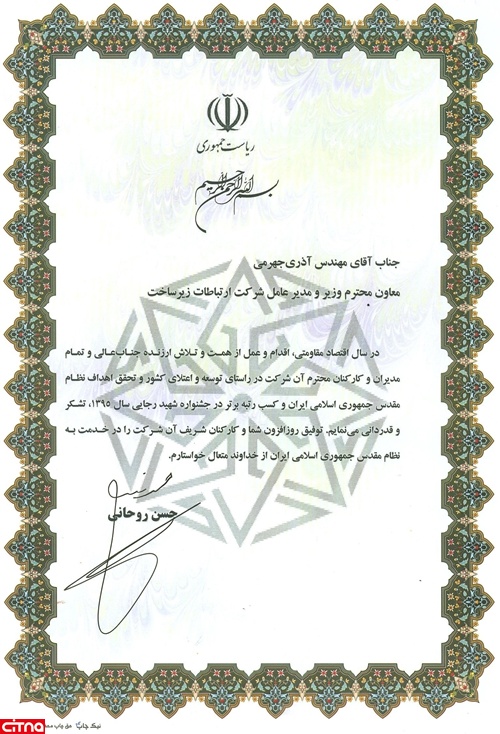 ریاست جمهوری
بسم الله الرحمن الرحیم
جناب آقای مهندس آذری‌جهرمی
معاون محترم وزیر و مدیر عامل شرکت ارتباطات زیرساخت
در سال اقتصاد مقاومتی، اقدام و عمل از همت و تلاش ارزنده جناب‌عالی و تمام
مدیران و کارکنان محترم آن شرکت در راستای توسعه و اعتلای کشور و تحقق اهداف نظام
مقدس جمهوری اسلامی ایران و کسب رتبه برتر در جشنواره شهید رجایی سال ۱۳۹۵، تشکر
و قدردانی می‌نمایم. توفیق روزافزون شما و کارکنان شریف آن شرکت را در خدمت به
نظام مقدس جمهوری اسلامی ایران از خداوند متعال خواستارم.
حسن روحانی
CITNA